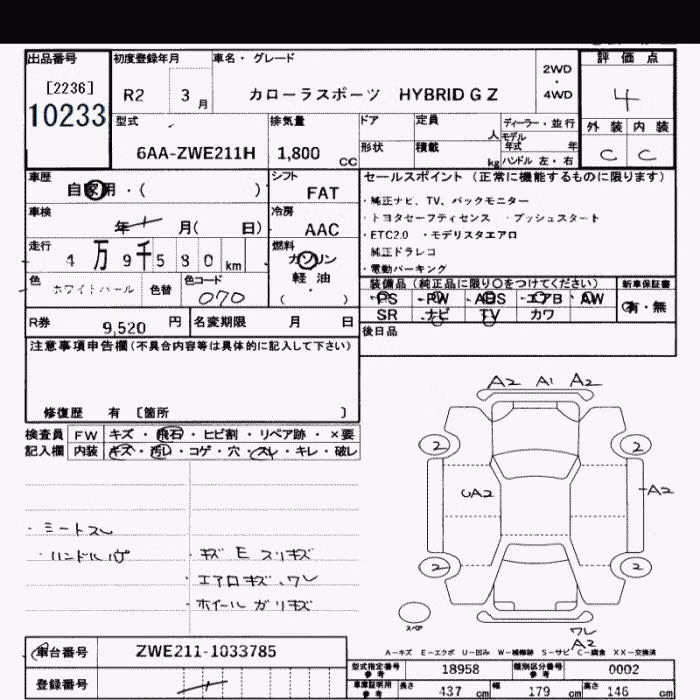 出品番号
[2236]
10233
初度登録年月
R2 3月
車名・グレード
カローラスポーツ HYBRID G Z
2WD
・
4WD
評価点
4
外装 内装
C C
型式
6AA-ZWE211H
排気量
1,800 CC
ドア
形状
定員 人
積載 kg
ディーラー・並行
モデル
年式 年
ハンドル 左・右
車歴
自家用・( )
シフト
FAT
車検
年 月( 日)
冷房
AAC
走行
4万9千580km
燃料
ガソリン
軽油
( )
色 ホワイトパール 色替
色コード 070
R券 9,520 円
名変期限 月 日
セールスポイント(正常に機能するものに限ります)
・純正ナビ、TV、バックモニター
・トヨタセーフティセンス ・プッシュスタート
・ETC2.0 ・モデリスタエアロ
純正ドラレコ
・電動パーキング
装備品(純正品に限り○をつけてください)
PS PW ABS エアB AW
SR ナビ TV カワ
新車保証書
有・無
後日品
注意事項申告欄(不具合内容等は具体的に記入して下さい)
修復歴 有 〔箇所 〕
検査員
記入欄
FW キズ・飛石・ヒビ割・リペア跡・×要
内装 キズ・汚レ・コゲ・穴・スレ・キレ・破レ
・ミートスレ
・ハンドル
・キズ E スリキズ
・エアロキズ、ワレ
・ホイールガリキズ
A2 A1 A2
2 2
UA2
A2
2 2
スペア
ワレ
A2
A-キズ E-エクボ U-凹み W-補修跡 S-サビ C-腐食 XX-交換済
車台番号
ZWE211-1033785
登録番号
型式指定番号
参考
18958
類別区分番号
参考
0002
車庫証明用
参考
長さ 437 cm
幅 179 cm
高さ 146 cm